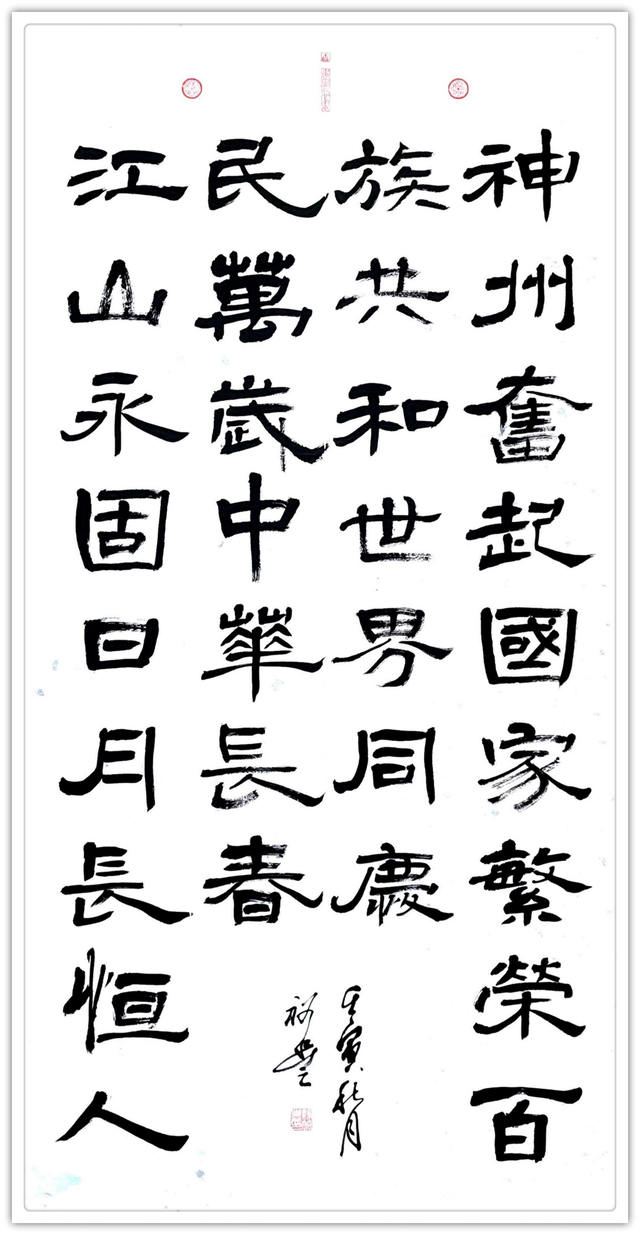 神州奮起國家繁榮百
族共和世界同慶
江山永固日月長恒人
民萬歲中華長春
壬寅秋月